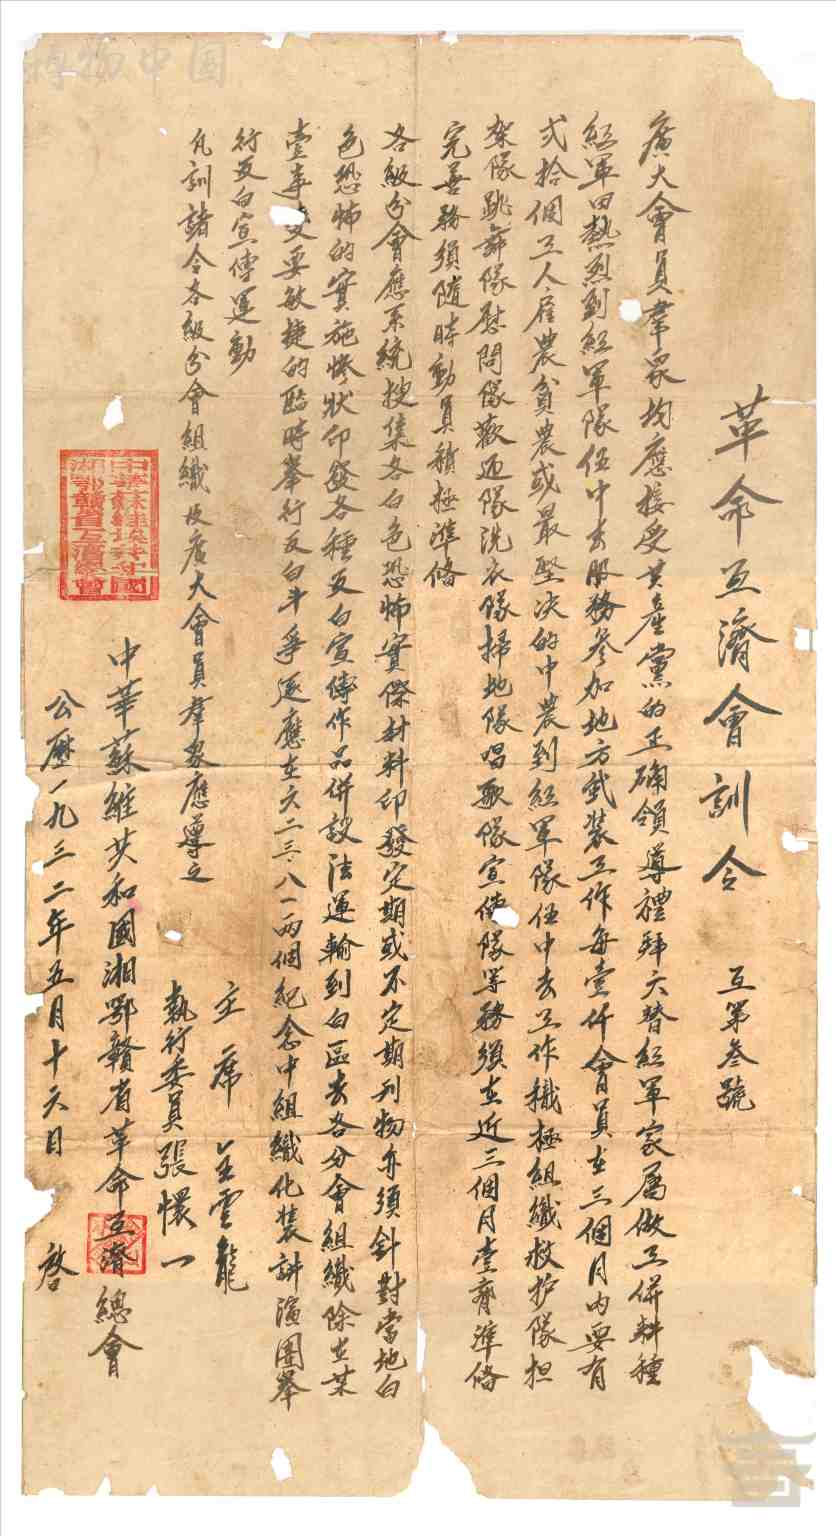 革命互濟會訓令　互第叁號
廣大會員羣眾均應接受共產黨的正确領導禮拜六替红軍家屬做工併耕種
红軍田熱烈到红軍隊伍中去服務參加地方武裝工作每壹仟會員在三個月内要有
弍拾個工人雇農貧農或最堅决的中農到红軍隊伍中去工作積極組織救护隊担
架隊跳舞隊慰問隊歡迎隊洗衣隊掃地隊唱歌隊宣傳隊等務須在近三個月壹齊準備
完善務須隨時動員積極準備
各級分會應系統搜集各白色恐怖實際材料印發定期或不定期刊物亦須針對當地白
色恐怖的實施慘狀印發各種反白宣傳作品併設法運輸到白區去各分會組織除在某
壹事变要敏捷的臨時舉行反白斗爭逐應在六二三·八一兩個紀念中組織化裝講演團舉
行反白宣傳運動
凡訓諸令各級分會組織及廣大會員羣眾應尊之
主席　雲龍
執行委員張懷一
中華蘇維共和國湘鄂贛省革命互濟總會
公歷一九三二年五月十六日　啓
中華蘇維埃共和國
湘鄂贛省互濟總會
博物中国